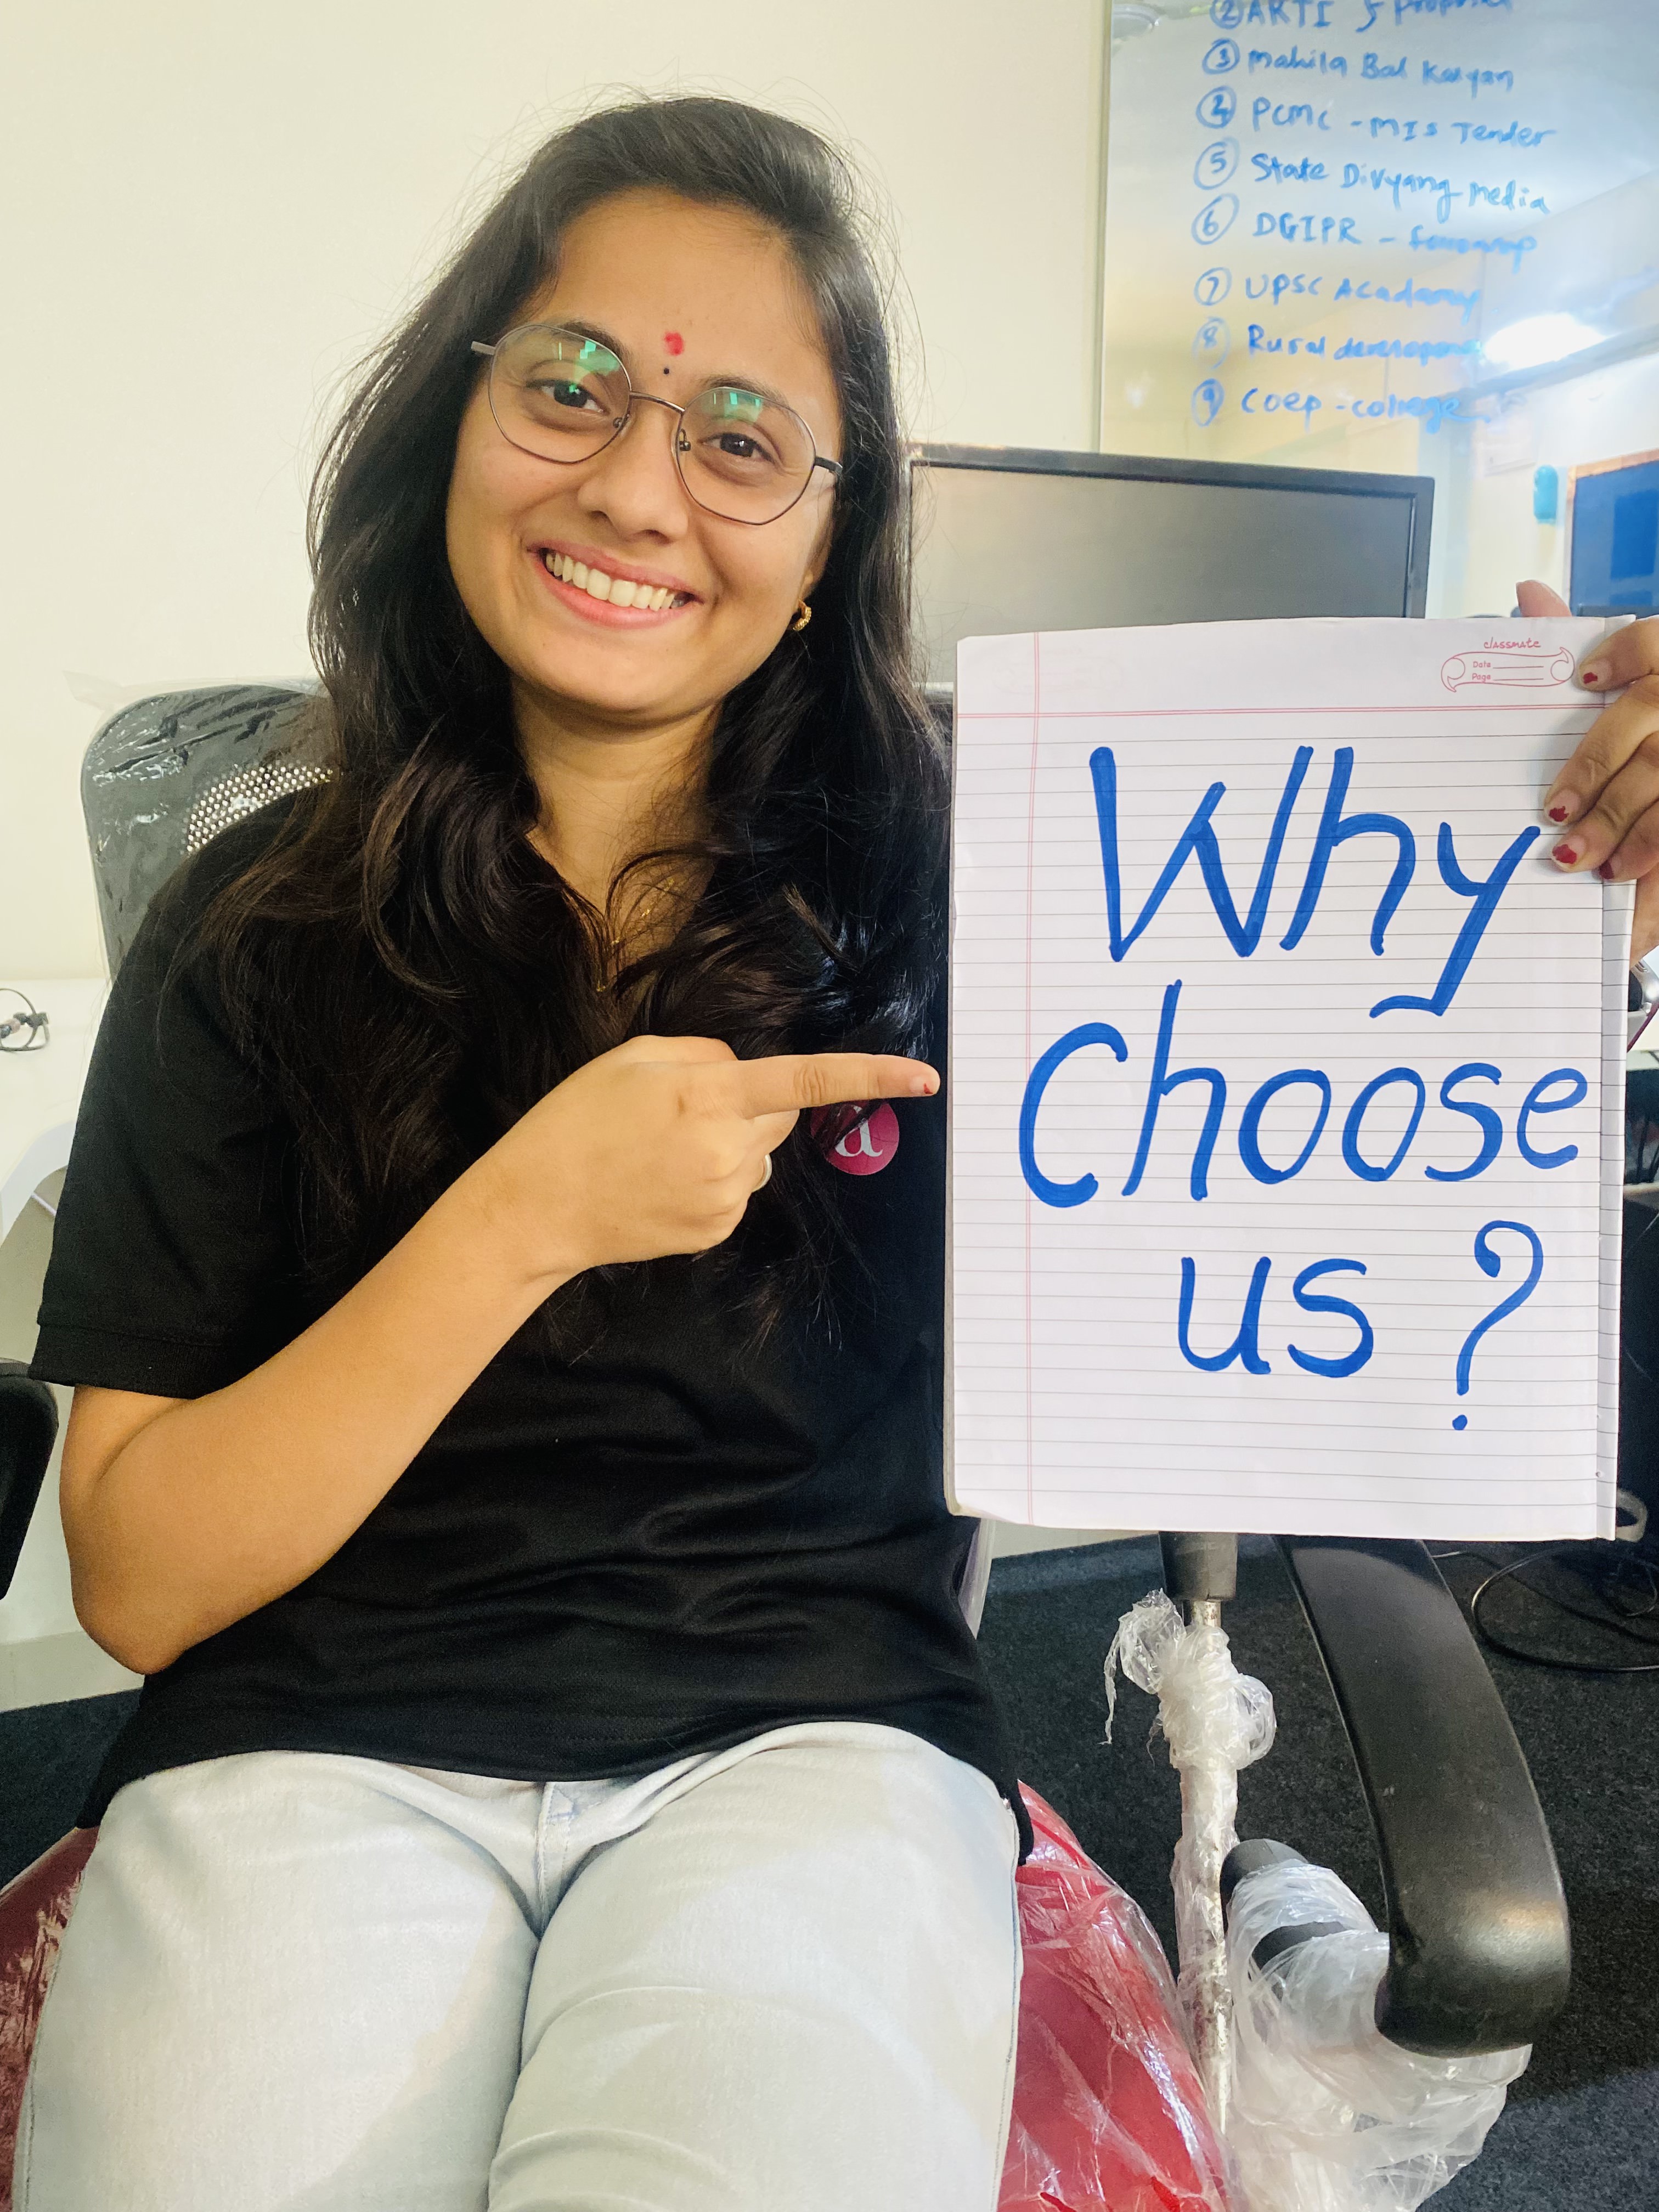 ② ARTI
③ Mahila Bal Kalyan
④ PCMC - MIS Tender
⑤ State Divyang Media
⑥ DGIPR -
⑦ UPSC Academy
⑧ Rural
⑨ COEP - College
classmate
Date
Page
Why
Choose
us ?
a